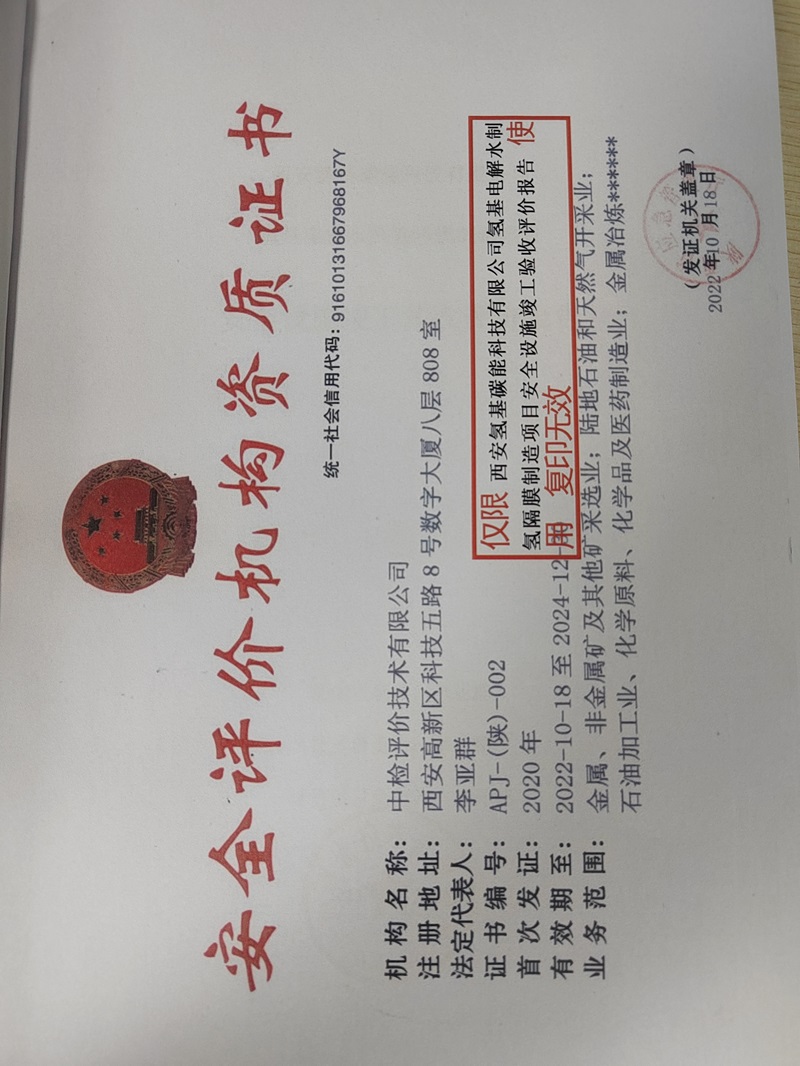 安全评价机构资质证书
统一社会信用代码：91610131667968167Y
机构名称：中检评价技术有限公司
注册地址：西安高新区科技五路8号数字大厦八层808室
法定代表人：李亚群
证书编号：APJ-(陕)-002
首次发证：2020年
有效期至：2022-10-18至2024-12
业务范围：金属、非金属矿及其他矿采选业；陆地石油和天然气开采业；
石油加工业、化学原料、化学品及医药制造业；金属冶炼******
仅限西安氢基碳能科技有限公司氢基电解水制
氢隔膜制造项目安全设施竣工验收评价报告使
用 复印无效
（发证机关盖章）
2022年10月18日